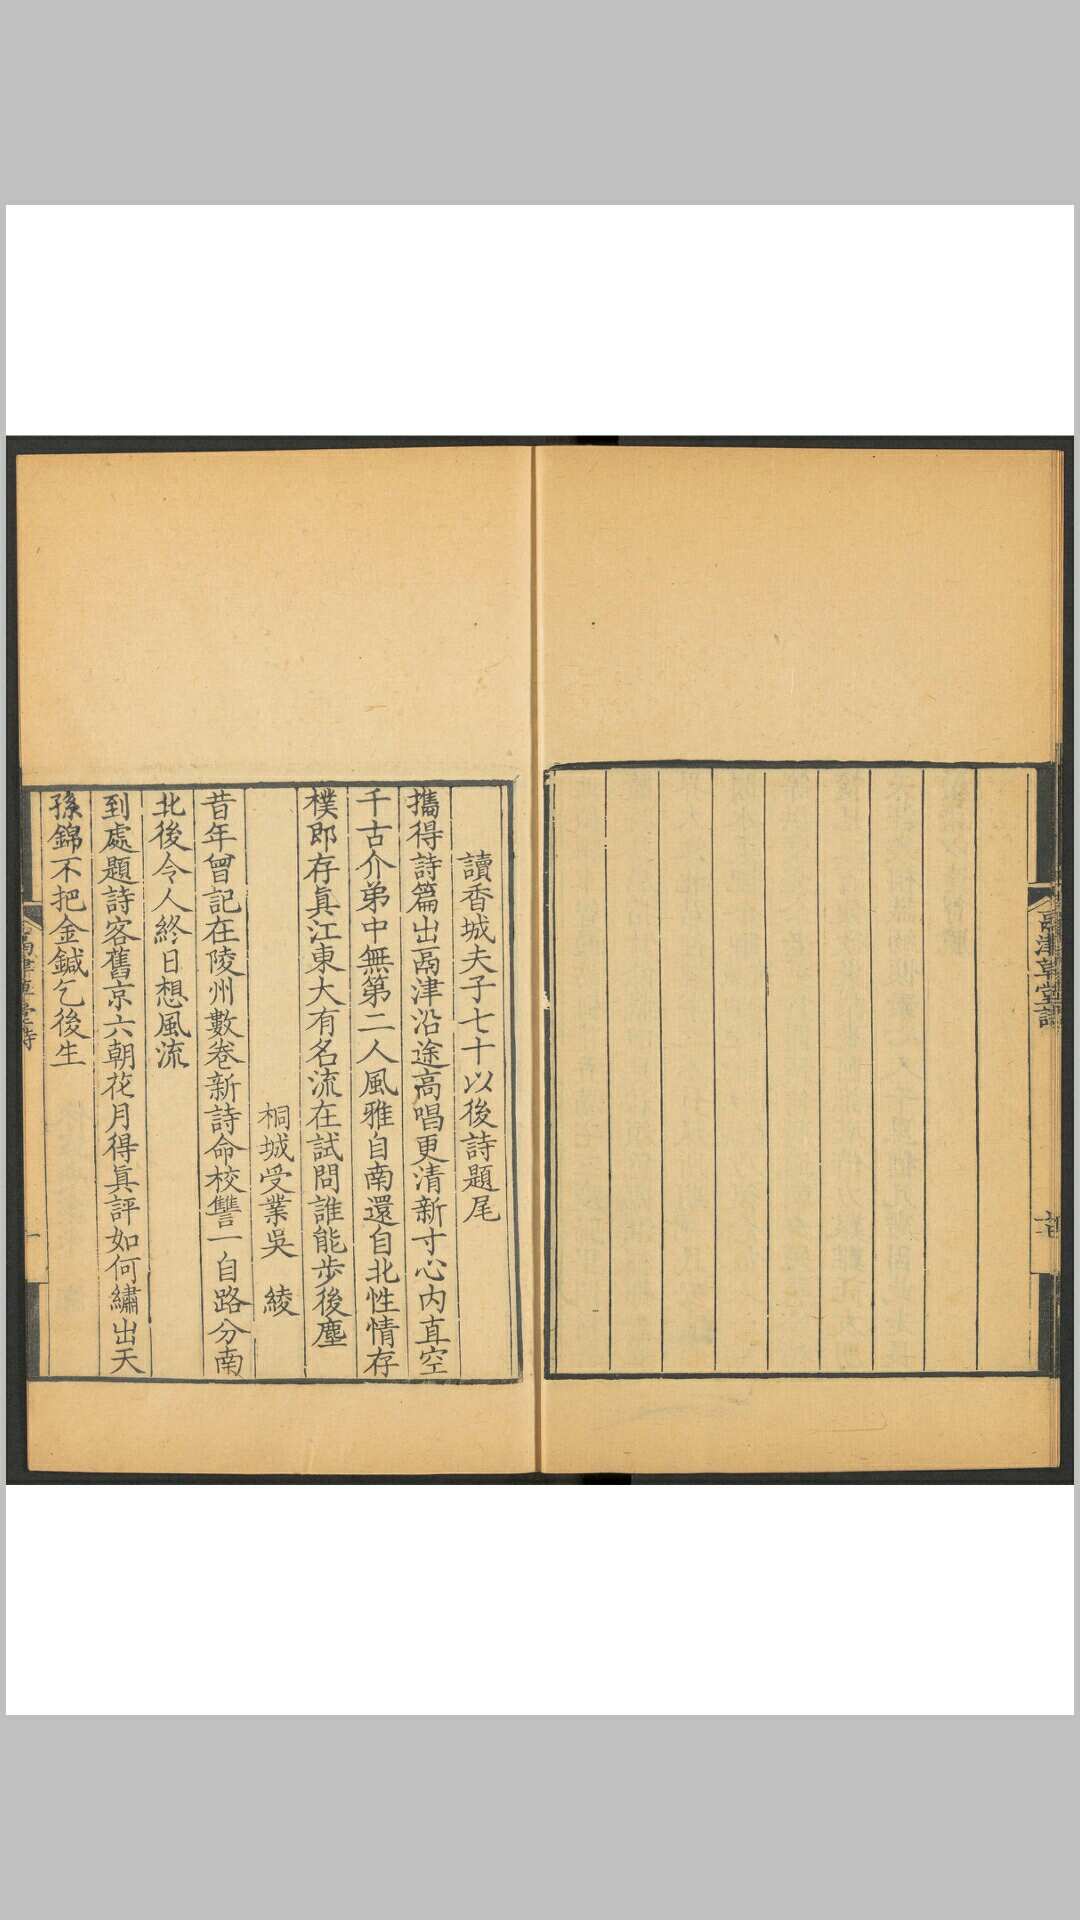 鬲津草堂詩
讀香城夫子七十以後詩題尾
攜得詩篇出鬲津沿途高唱更清新寸心內直空
千古介弟中無第二人風雅自南還自北性情存
樸即存眞江東大有名流在試問誰能步後塵
桐城受業吳　綾
昔年曾記在陵州數卷新詩命校讐一自路分南
北後令人終日想風流
到處題詩客舊京六朝花月得眞評如何繡出天
孫錦不把金鍼乞後生
鬲津草堂詩
一